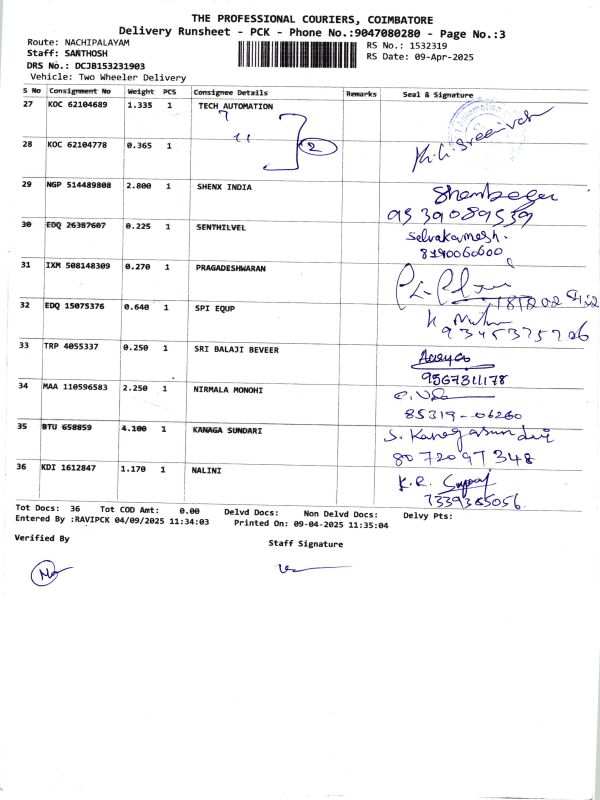 THE PROFESSIONAL COURIERS, COIMBATORE
Delivery Runsheet - PCK - Phone No.:9047080280 - Page No.:3
Route: NACHIPALAYAM
RS No.: 1532319
Staff: SANTHOSH
RS Date: 09-Apr-2025
DRS No.: DCJB153231903
Vehicle: Two Wheeler Delivery
S No Consignment No Weight PCS Consignee Details Remarks Seal & Signature
27 KOC 62104689 1.335 1 TECH AUTOMATION
28 KOC 62104778 0.365 1 " 2
29 NGP 514489808 2.800 1 SHENX INDIA
9539089539
30 EDQ 26387607 0.225 1 SENTHILVEL Selvakumesh.
31 IXM 508148309 0.270 1 PRAGADESHWARAN
32 EDQ 15075376 0.640 1 SPI EQUP
33 TRP 4055337 0.250 1 SRI BALAJI BEVEER
9567311178
34 MAA 110596583 2.250 1 NIRMALA MONOHI
85319-06260
35 BTU 658859 4.100 1 KANAGA SUNDARI S. Kanagasundari
8072097348
36 KDI 1612847 1.170 1 NALINI K.R.
7339385056.
Tot Docs: 36 Tot COD Amt: 0.00 Delvd Docs: Non Delvd Docs: Delvy Pts:
Entered By :RAVIPCK 04/09/2025 11:34:03 Printed On: 09-04-2025 11:35:04
Verified By
Staff Signature